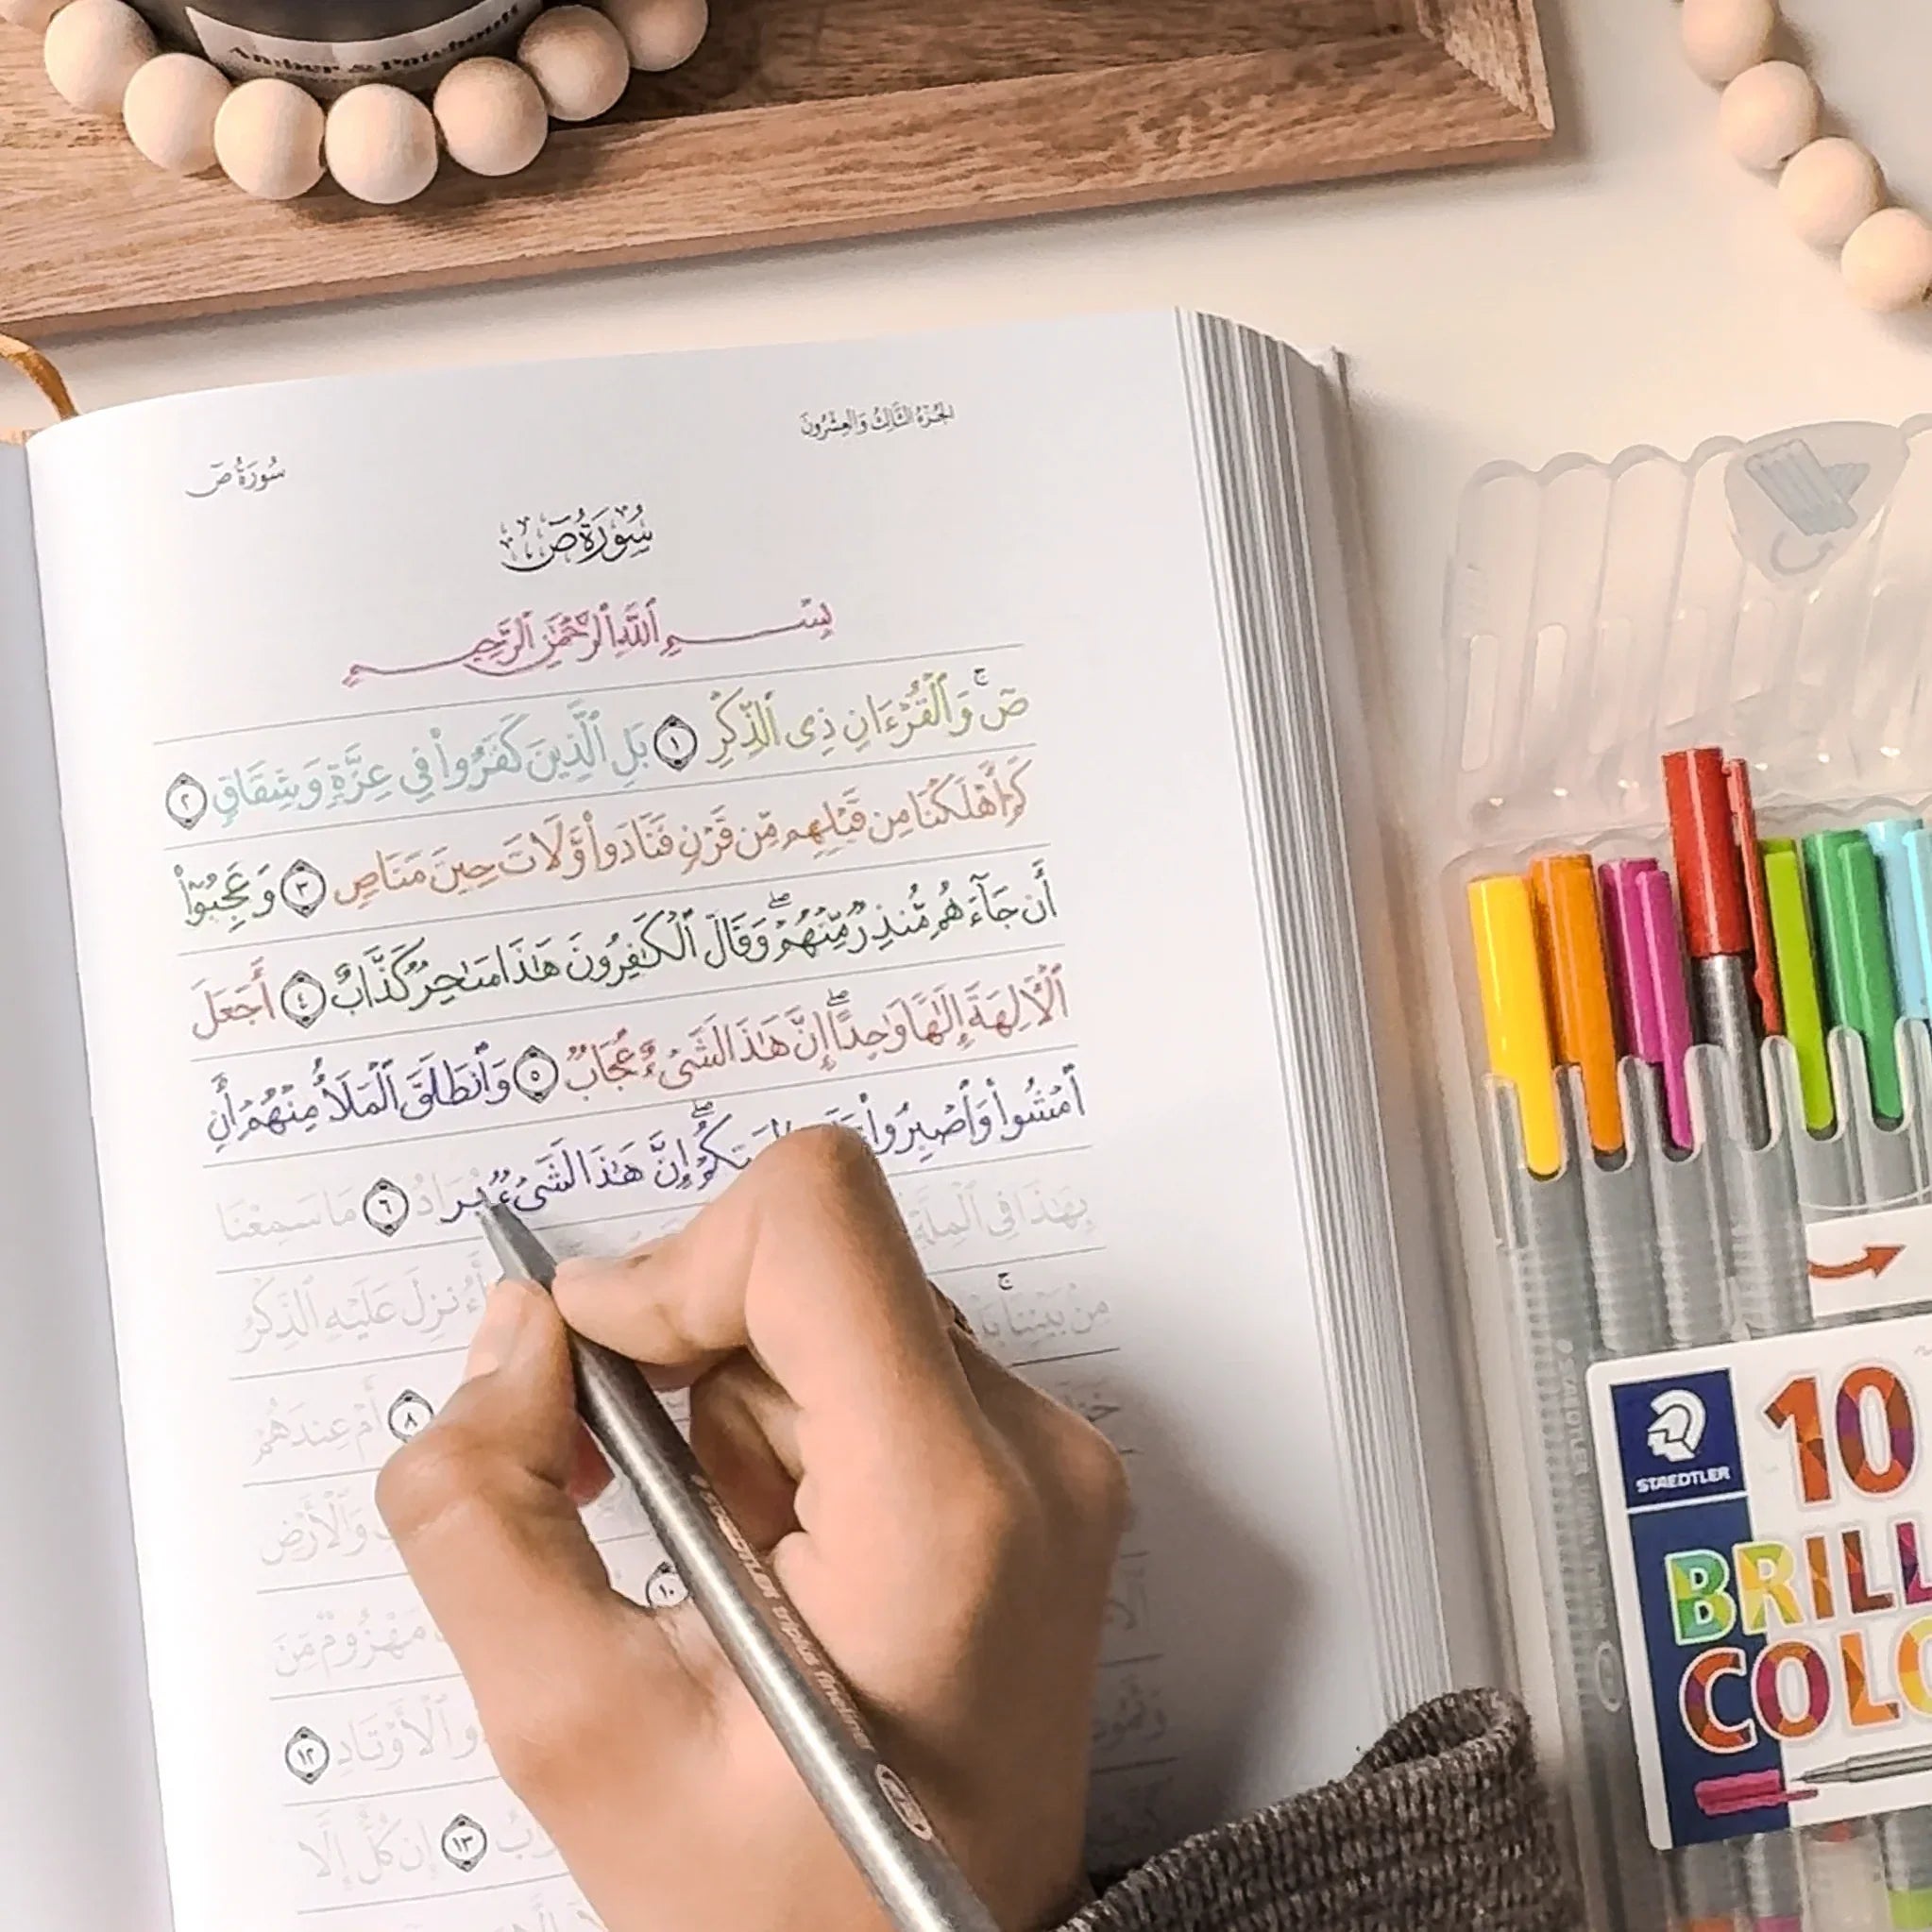 Amber & Patchouli
الجزء الثالث والعشرون
سُورَةُ صٓ
سُورَةُ صٓ
بِسْمِ ٱللَّهِ ٱلرَّحْمَٰنِ ٱلرَّحِيمِ
صٓ ۚ وَٱلْقُرْءَانِ ذِى ٱلذِّكْرِ ١ بَلِ ٱلَّذِينَ كَفَرُوا۟ فِى عِزَّةٍ وَشِقَاقٍ ٢
كَمْ أَهْلَكْنَا مِن قَبْلِهِم مِّن قَرْنٍ فَنَادَوا۟ وَّلَاتَ حِينَ مَنَاصٍ ٣ وَعَجِبُوٓا۟
أَن جَآءَهُم مُّنذِرٌ مِّنْهُمْ ۖ وَقَالَ ٱلْكَٰفِرُونَ هَٰذَا سَٰحِرٌ كَذَّابٌ ٤ أَجَعَلَ
ٱلْأَلِهَةَ إِلَٰهًا وَٰحِدًا ۖ إِنَّ هَٰذَا لَشَىْءٌ عُجَابٌ ٥ وَٱنطَلَقَ ٱلْمَلَأُ مِنْهُمْ أَنِ
ٱمْشُوا۟ وَٱصْبِرُوا۟ إِنَّ هَٰذَا لَشَىْءٌ يُرَادُ ٦ مَا سَمِعْنَا
بِهَٰذَا فِى ٱلْمِلَّةِ أَءُنزِلَ عَلَيْهِ ٱلذِّكْرُ
مِنۢ بَيْنِنَا ۚ ٨ أَمْ عِندَهُمْ
وَٱلْأَرْضِ
١٠ مَهْزُومٌ مِّنَ
ٱلْأَوْتَادِ ١٢
١٣ إِن كُلٌّ إِلَّا
STAEDTLER triplus fineliner
STAEDTLER
10
BRILL
COLO